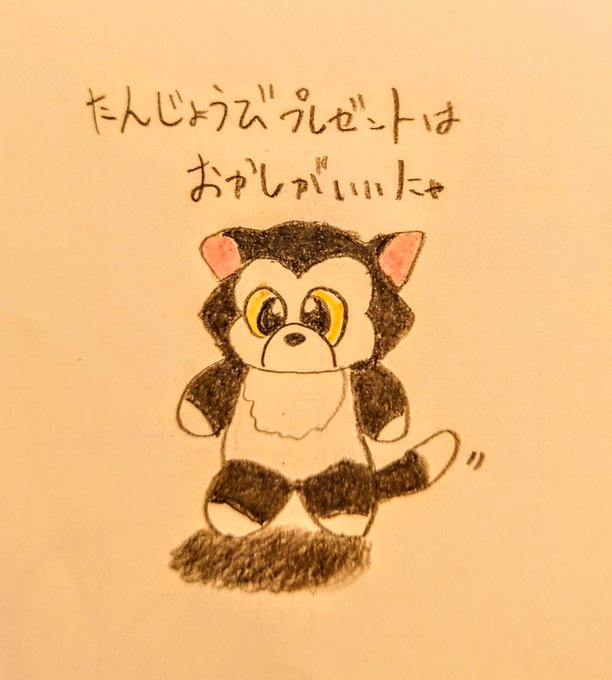 たんじょうびプレゼントは
おかしがいいにゃ